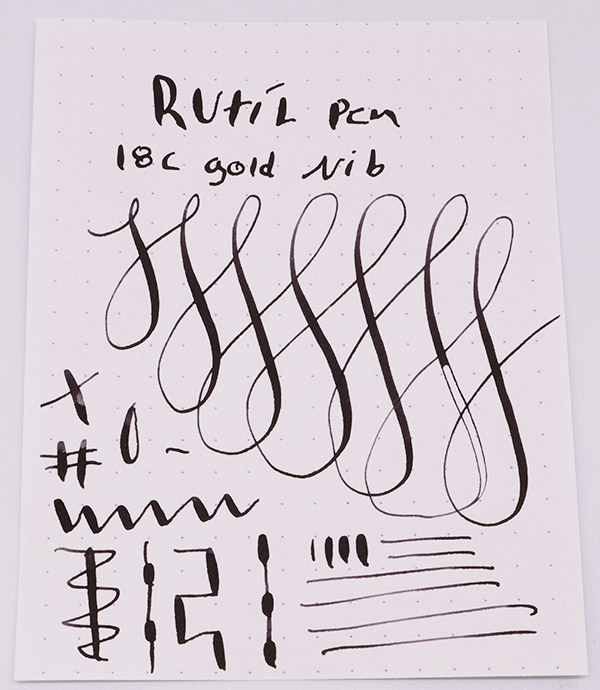 RUtiL Pen
18C gold Nib